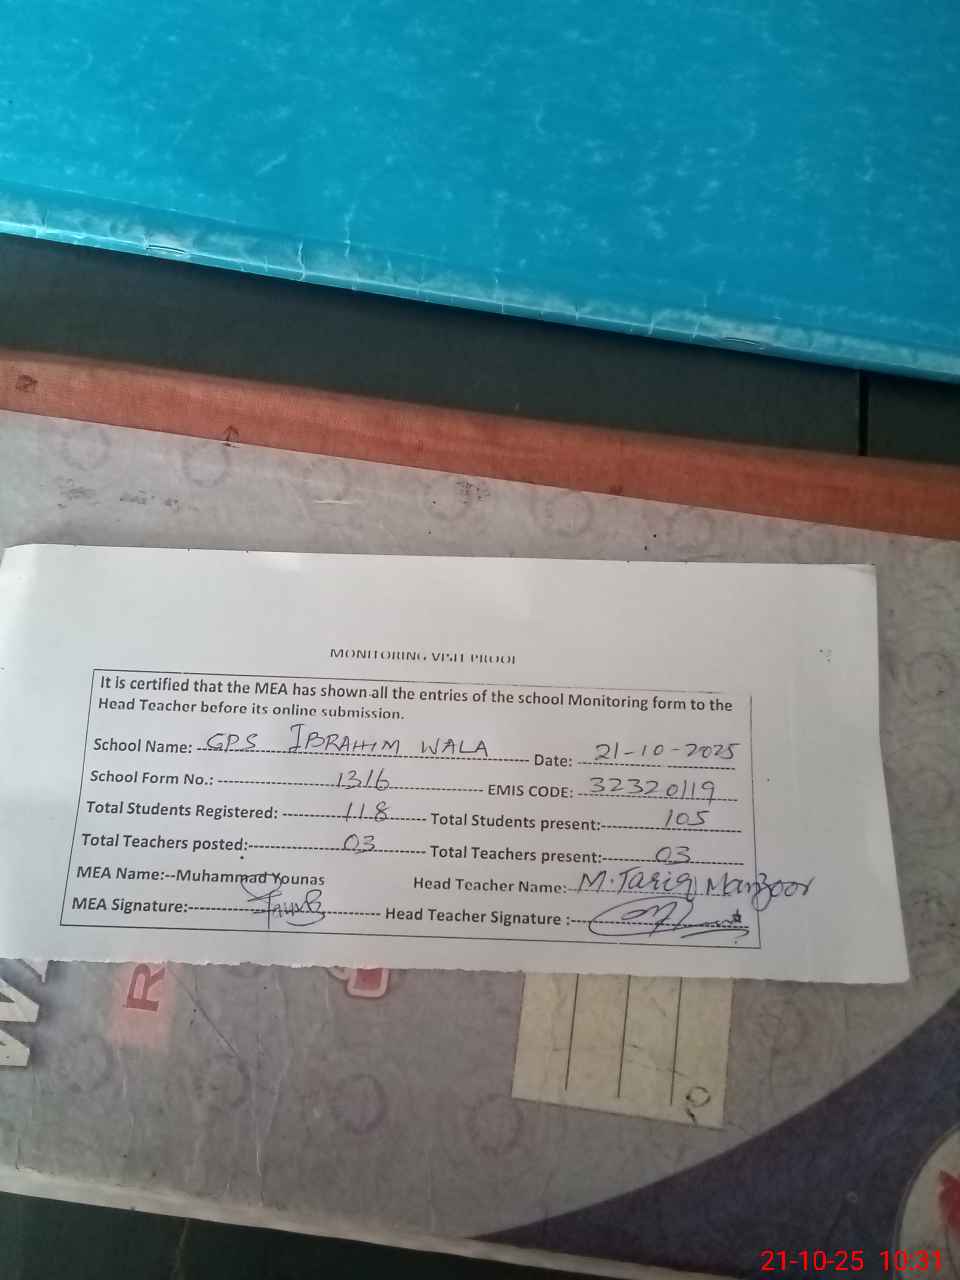 MONITORING VISIT PROOF
It is certified that the MEA has shown all the entries of the school Monitoring form to the
Head Teacher before its online submission.
School Name: GPS IBRAHIM WALA Date: 21-10-2025
School Form No.: 1316 EMIS CODE: 32320119
Total Students Registered: 118 Total Students present: 105
Total Teachers posted: 03 Total Teachers present: 03
MEA Name:--Muhammad Younas Head Teacher Name: M. Tariq Manzoor
MEA Signature: Head Teacher Signature :
R
21-10-25 10:31